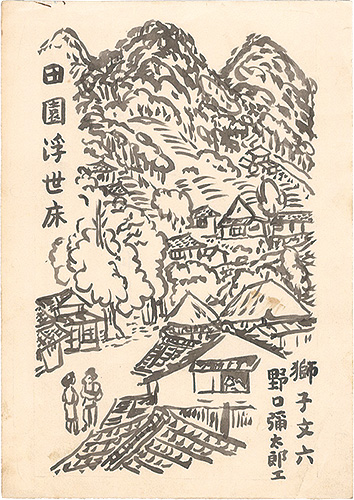 田園浮世床
獅子文六
野口彌太郎エ